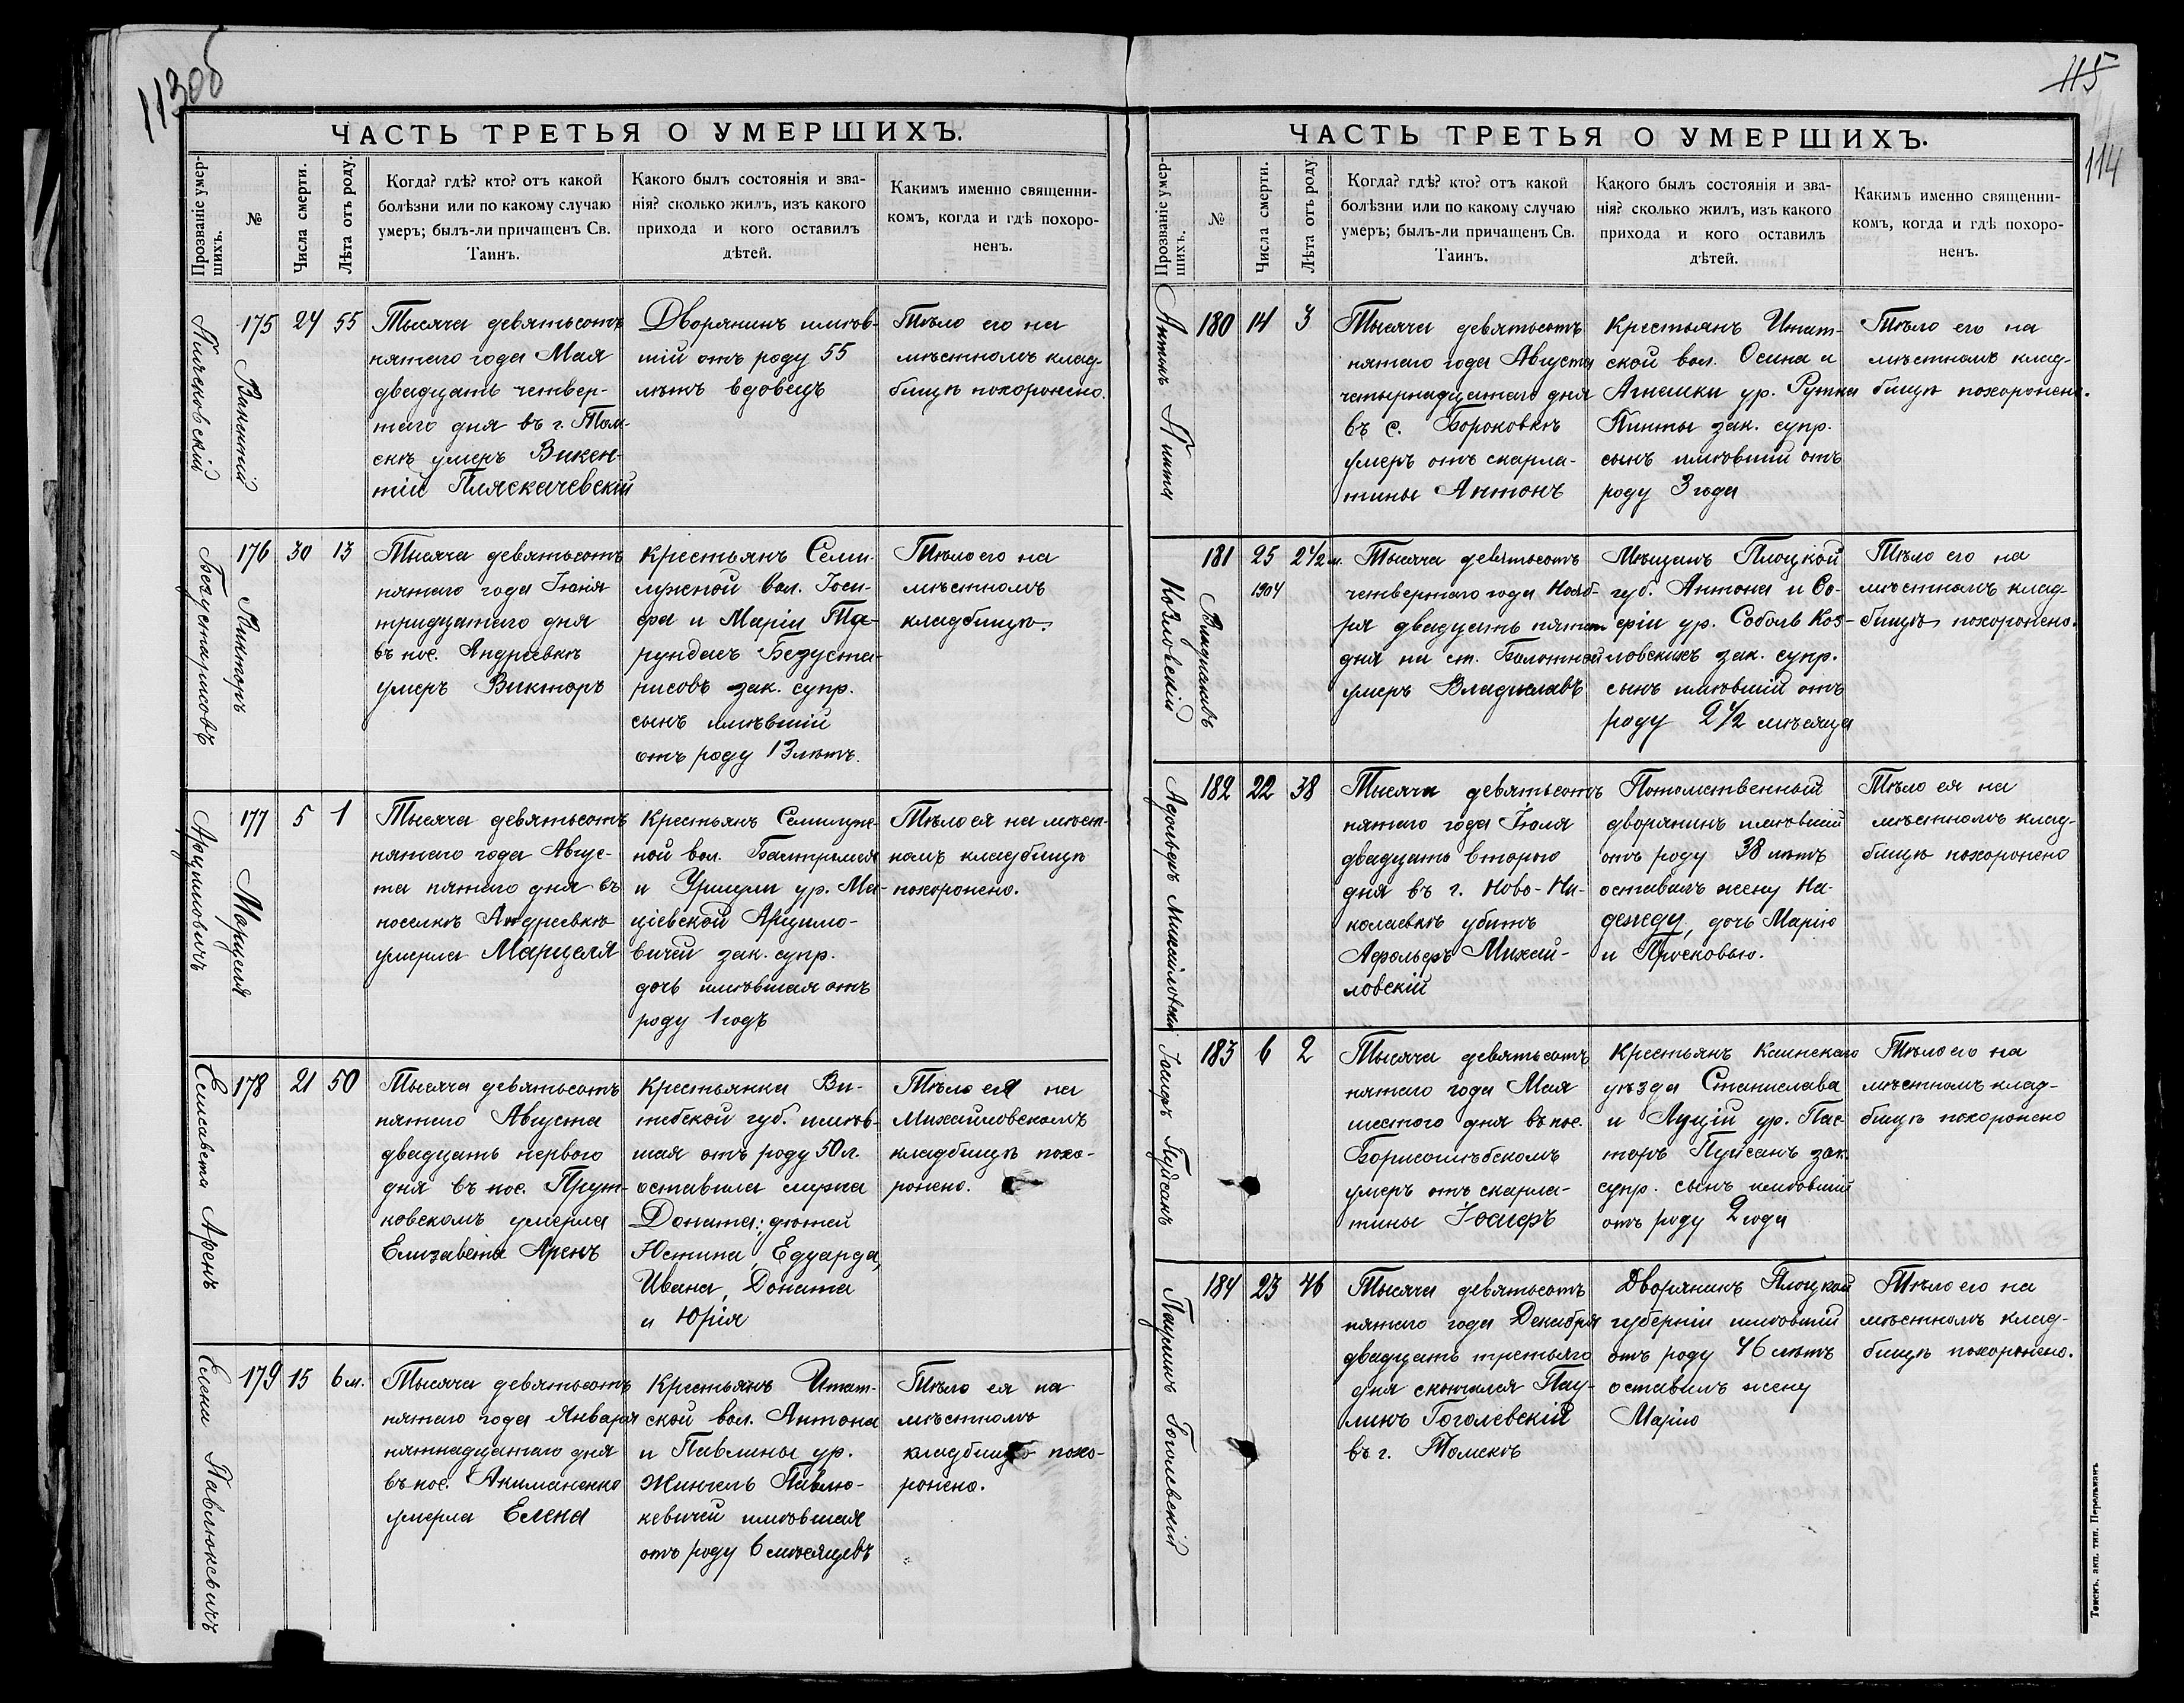 113об
ЧАСТЬ ТРЕТЬЯ О УМЕРШИХЪ.
Прозваніе умер-
шихъ.
№
Числа смерти.
Лѣта отъ роду.
Когда? гдѣ? кто? отъ какой
болѣзни или по какому случаю
умеръ; былъ-ли причащенъ Св.
Таинъ.
Какого былъ состоянія и зва-
нія? сколько жилъ, изъ какого
прихода и кого оставилъ
дѣтей.
Какимъ именно священни-
комъ, когда и гдѣ похоро-
ненъ.
Викентій
175
24
55
Тысяча девятьсотъ
пятаго года Мая
двадцать четвер-
таго дня въ г. Том-
скѣ умеръ Викен-
тій Пляскачевскій
Дворянинъ имѣв-
шій отъ роду 55
лѣтъ вдовецъ
Тѣло его на
мѣстномъ клад-
бищѣ похоронено.
Безустарисовъ
Викторъ
176
30
13
Тысяча девятьсотъ
пятаго года Іюня
тридцатаго дня
въ пос. Андреевкѣ
умеръ Викторъ
Крестьянъ Семи-
лужной вол. Іоси-
фа и Маріи
Безуста-
рисовъ зак. супр.
сынъ имѣвшій
отъ роду 13 лѣтъ.
Тѣло его на
мѣстномъ
кладбищѣ.
Арцимовичъ
Марцеля
177
5
1
Тысяча девятьсотъ
пятаго года Авгус-
та пятаго дня въ
поселкѣ Андреевкѣ
умерла Марцеля
Крестьянъ Семилуж-
ной вол. Балтромея
и Уршули ур. Ма-
ціевской Арцимо-
вичей зак. супр.
дочь имѣвшая отъ
роду 1 годъ
Тѣло ея на мѣст-
номъ кладбищѣ
похоронено.
Елисавета Аренъ
178
21
50
Тысяча девятьсотъ
пятаго Августа
двадцать перваго
дня въ пос. Прут-
ковскомъ умерла
Елизавета Аренъ
Крестьянка Ви-
тебской губ. имѣв-
шая отъ роду 50 л.
оставила мужа
Доната; дѣтей
Юстина, Едуарда,
Ивана, Доната
и Юрія
Тѣло ея на
Михайловскомъ
кладбищѣ похо-
ронено.
Елена Павлюкевичъ
179
15
6 м.
Тысяча девятьсотъ
пятаго года Января
пятнадцатаго дня
въ пос. Акиманенко
умерла Елена
Крестьянъ Итат-
ской вол. Антона
и Павлины ур.
Жингель Павлю-
кевичей имѣвшая
отъ роду 6 мѣсяцевъ
Тѣло ея на
мѣстномъ
кладбищѣ похо-
ронено.
115
114
ЧАСТЬ ТРЕТЬЯ О УМЕРШИХЪ.
Прозваніе умер-
шихъ.
№
Числа смерти.
Лѣта отъ роду.
Когда? гдѣ? кто? отъ какой
болѣзни или по какому случаю
умеръ; былъ-ли причащенъ Св.
Таинъ.
Какого былъ состоянія и зва-
нія? сколько жилъ, изъ какого
прихода и кого оставилъ
дѣтей.
Какимъ именно священни-
комъ, когда и гдѣ похоро-
ненъ.
Антонъ Пинта
180
14
3
Тысяча девятьсотъ
пятаго года Августа
четырнадцатаго дня
въ с. Бороковкѣ
умеръ отъ скарла-
тины Антонъ
Крестьянъ Итат-
ской вол. Осипа и
Агнешки ур. Рутка
Пинты зак. супр.
сынъ имѣвшій отъ
роду 3 года
Тѣло его на
мѣстномъ клад-
бищѣ похоронено.
Козловскій
Владиславъ
181
25
1904
2 1/2 м.
Тысяча девятьсотъ
четвертаго года Нояб-
ря двадцать пятаго
дня на ст. Болотной
умеръ Владиславъ
Мѣщанъ Плоцкой
губ. Антона и Со-
фіи ур. Соболь Коз-
ловскихъ зак. супр.
сынъ имѣвшій отъ
роду 2 1/2 мѣсяца
Тѣло его на
мѣстномъ клад-
бищѣ похоронено.
Адольфъ Михайловскій
182
22
38
Тысяча девятьсотъ
пятаго года Іюля
двадцать второго
дня въ г. Ново-Ни-
колаевкѣ убитъ
Адольфъ Михай-
ловскій
Потомственный
дворянинъ имѣвшій
отъ роду 38 лѣтъ
оставилъ жену На-
дежду, дочь Марію
и Просковью.
Тѣло ея на
мѣстномъ клад-
бищѣ похоронено
Іосифъ Пуйсанъ
183
6
2
Тысяча девятьсотъ
пятаго года Мая
шестого дня въ пос.
Борисоглѣбскомъ
умеръ отъ скарла-
тины Іосифъ
Крестьянъ Каинскаго
уѣзда Станислава
и Луціи ур. Пас-
торъ Пуйсанъ зак.
супр. сынъ имѣвшій
отъ роду 2 года
Тѣло его на
мѣстномъ клад-
бищѣ похоронено
Паулинъ Гоголевскій
184
23
46
Тысяча девятьсотъ
пятаго года Декабря
двадцать третьяго
дня скончался Пау-
линъ Гоголевскій
въ г. Томскѣ
Дворянинъ Плоцкой
губерніи имѣвшій
отъ роду 46 лѣтъ
оставилъ жену
Марію
Тѣло его на
мѣстномъ клад-
бищѣ похоронено.
Томскъ. акп. тип. Перельманъ